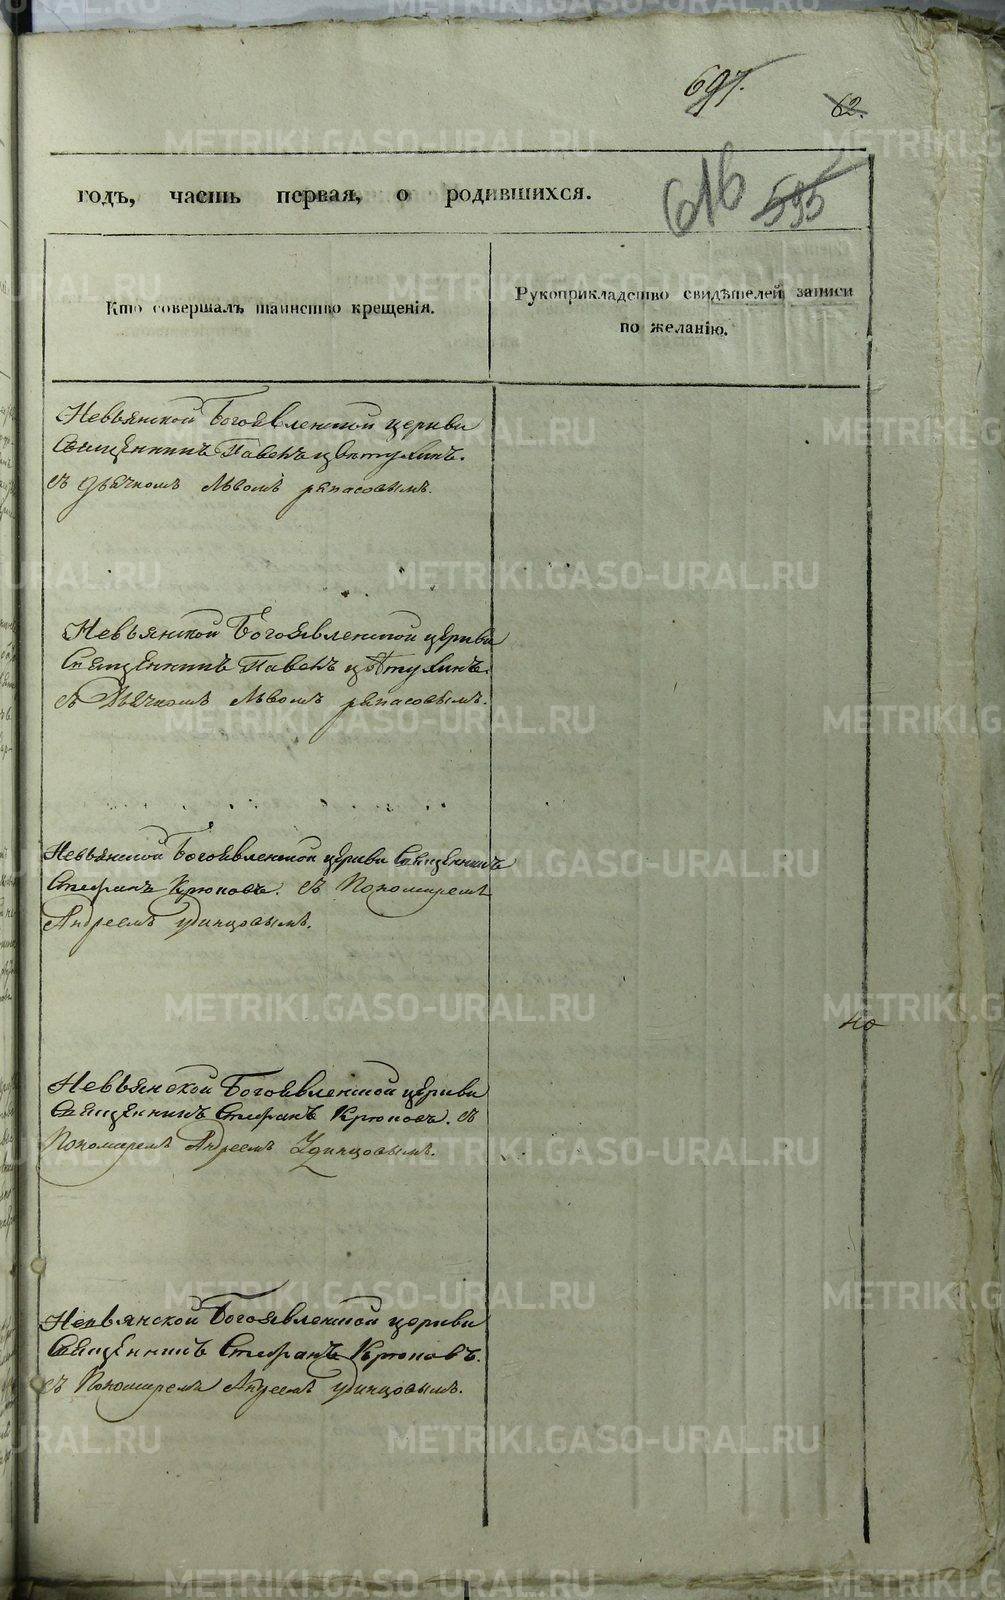 697.
62.
годъ, часть первая, о родившихся.
616 595
Кто совершалъ таинство крещенія.
Рукоприкладство свидѣтелей записи
по желанію.
Невьянской Богоявленской церкви
Священникъ Павелъ Цвѣтухинъ.
съ дьячкомъ Львомъ
Невьянской Богоявленской церкви
Священникъ Павелъ Цвѣтухинъ.
съ Дьячкомъ Львомъ
Невьянской Богоявленской церкви Священникъ
Стефанъ Крюковъ. съ Пономаремъ
Андреемъ Удинцовымъ.
Невьянской Богоявленской церкви
Священникъ Стефанъ Крюковъ. съ
Пономаремъ Андреемъ Удинцовымъ.
Невьянской Богоявленской церкви
Священникъ Стефанъ Крюковъ.
съ Пономаремъ Андреемъ Удинцовымъ.
METRIKI.GASO-URAL.RU